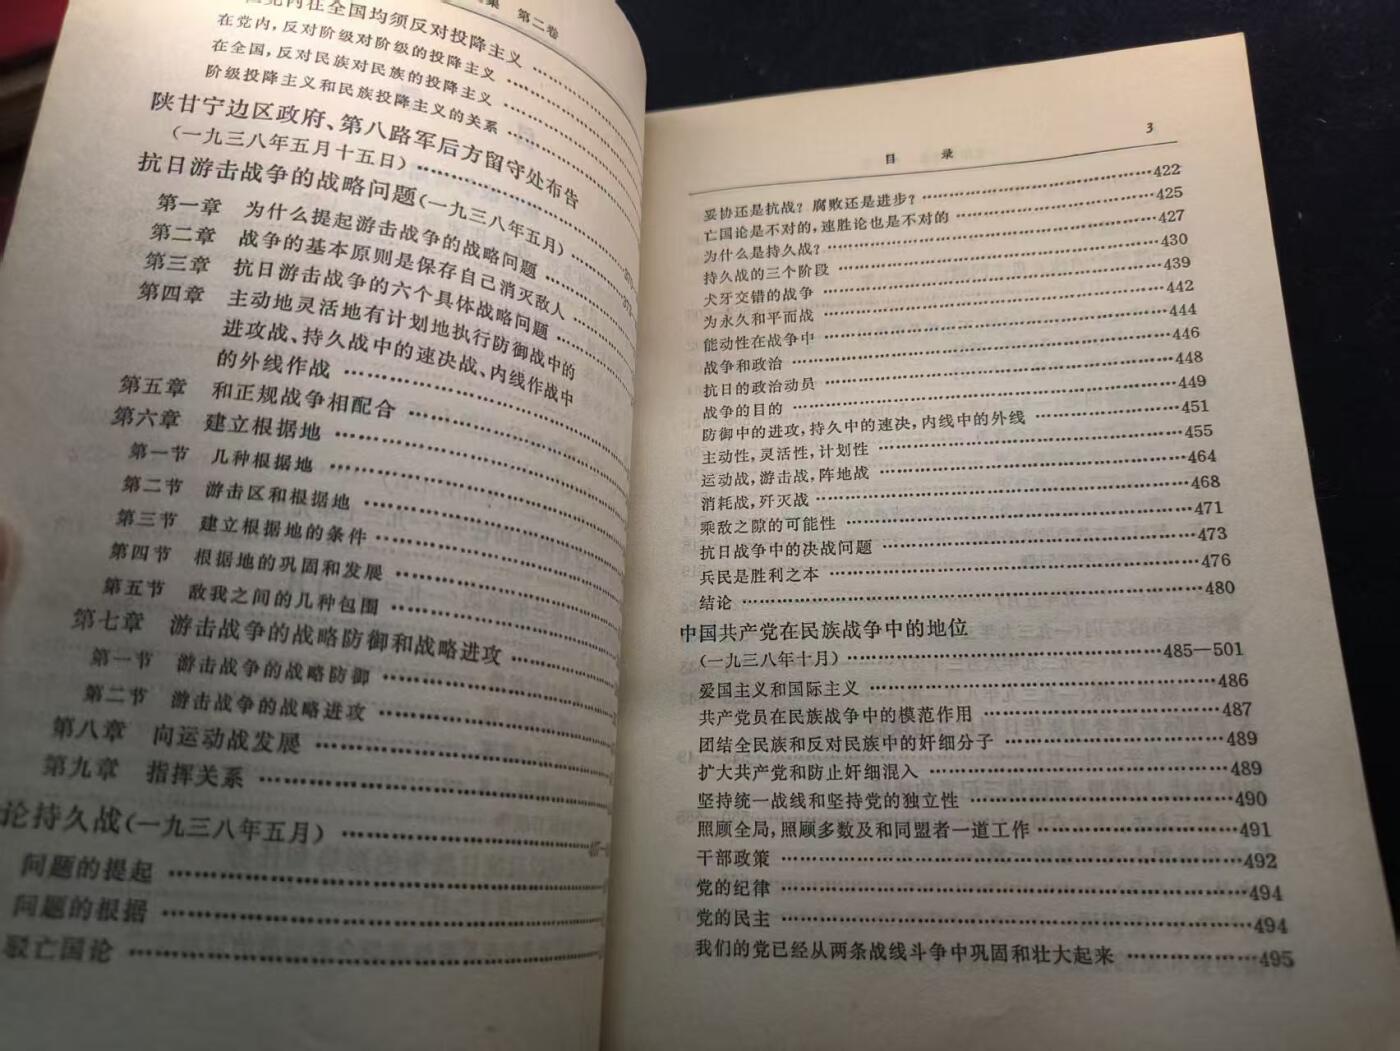 集 第二卷
在全国均须反对投降主义
在党内,反对阶级对阶级的投降主义
在全国,反对民族对民族的投降主义
阶级投降主义和民族投降主义的关系
陕甘宁边区政府、第八路军后方留守处布告
(一九三八年五月十五日)
抗日游击战争的战略问题(一九三八年五月)
第一章 为什么提起游击战争的战略问题
第二章 战争的基本原则是保存自己消灭敌人
第三章 抗日游击战争的六个具体战略问题
第四章 主动地灵活地有计划地执行防御战中的
进攻战、持久战中的速决战、内线作战中
的外线作战
第五章 和正规战争相配合
第六章 建立根据地
第一节 几种根据地
第二节 游击区和根据地
第三节 建立根据地的条件
第四节 根据地的巩固和发展
第五节 敌我之间的几种包围
第七章 游击战争的战略防御和战略进攻
第一节 游击战争的战略防御
第二节 游击战争的战略进攻
第八章 向运动战发展
第九章 指挥关系
论持久战(一九三八年五月)
问题的提起
问题的根据
驳亡国论
目 录 3
妥协还是抗战?腐败还是进步? 422
亡国论是不对的,速胜论也是不对的 425
为什么是持久战? 427
持久战的三个阶段 430
犬牙交错的战争 439
为永久和平而战 442
能动性在战争中 444
战争和政治 446
抗日的政治动员 448
战争的目的 449
防御中的进攻,持久中的速决,内线中的外线 451
主动性,灵活性,计划性 455
运动战,游击战,阵地战 464
消耗战,歼灭战 468
乘敌之隙的可能性 471
抗日战争中的决战问题 473
兵民是胜利之本 476
结论 480
中国共产党在民族战争中的地位
(一九三八年十月) 485—501
爱国主义和国际主义 486
共产党员在民族战争中的模范作用 487
团结全民族和反对民族中的奸细分子 489
扩大共产党和防止奸细混入 489
坚持统一战线和坚持党的独立性 490
照顾全局,照顾多数及和同盟者一道工作 491
干部政策 492
党的纪律 494
党的民主 494
我们的党已经从两条战线斗争中巩固和壮大起来 495